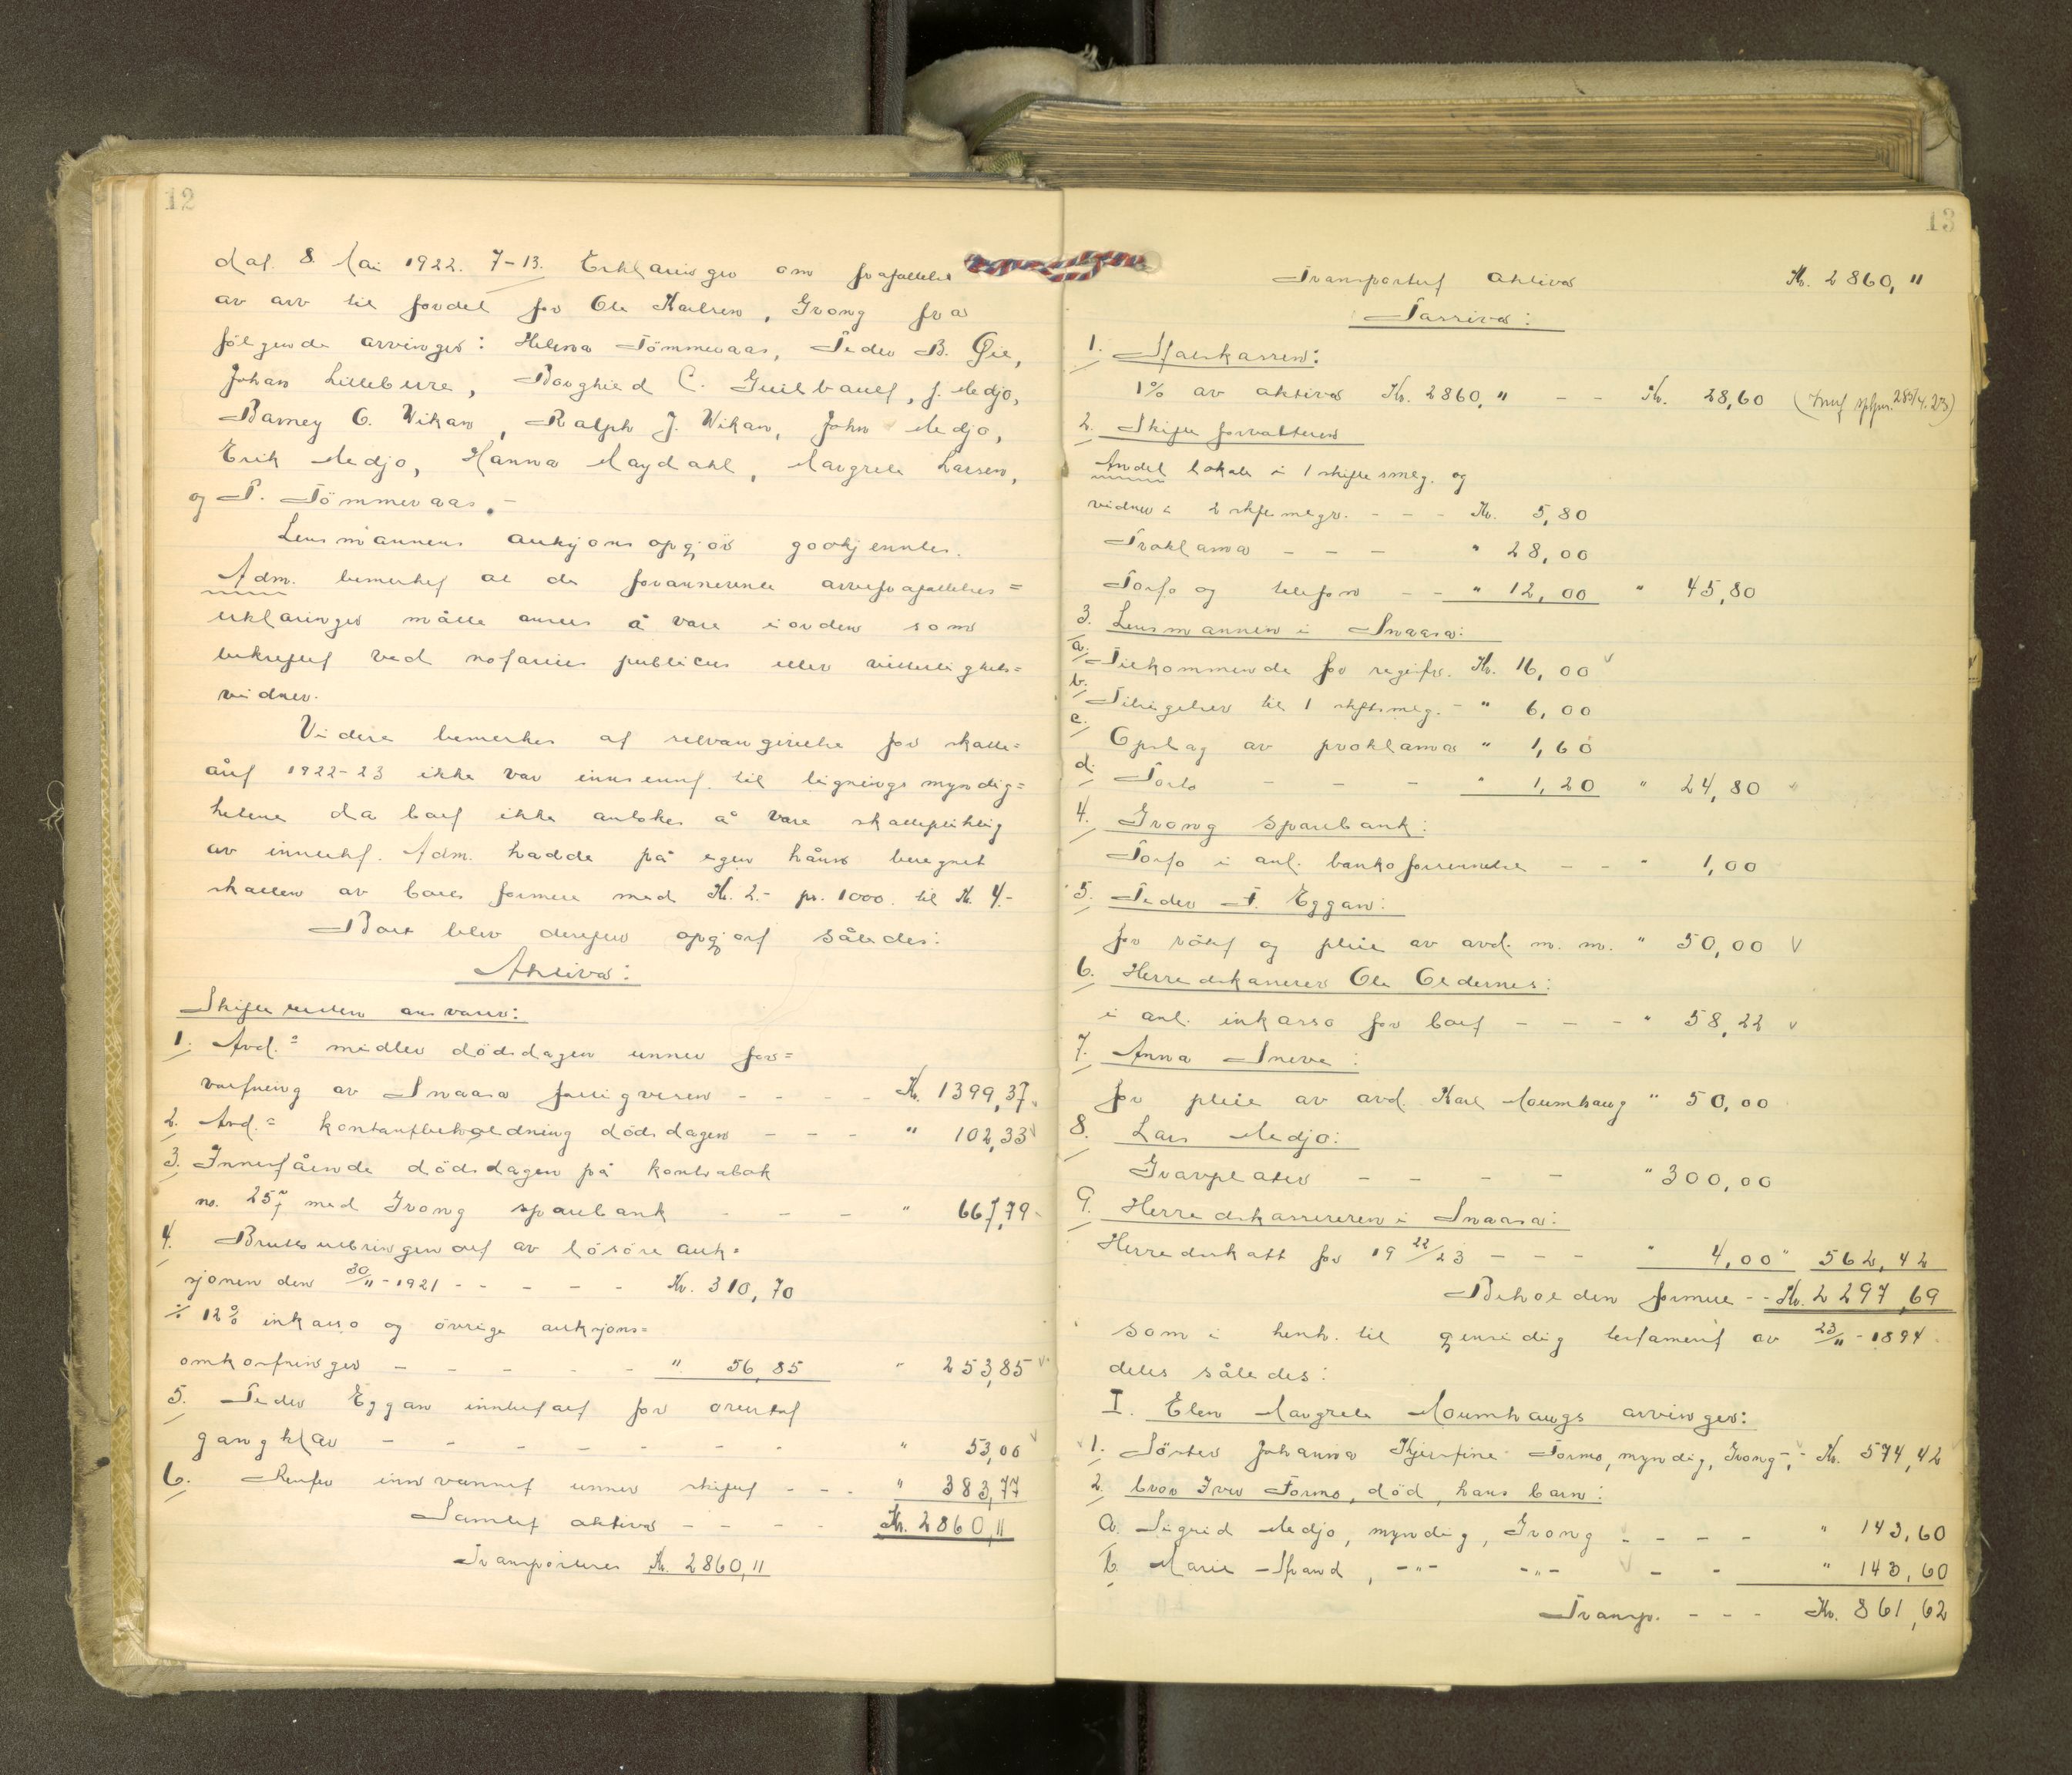 12
dat. 8. Mai 1922. 7-13. Erklæringer om frafallelse
av arv til fordel for Ole Karlsen, Grong fra
følgende arvinger: Helena Tömmeraas, Peder B. Öie,
Johan Lilleberre, Borghild C. Guilbault, J. Medjo,
Barney O. Vikan, Ralph J. Vikan, John Medjo,
Erik Medjo, Hanna Moydahl, Margrete Larsen,
og P. Tömmeraas.-
Lensmannens auksjonsopgjör godkjentes.
Adm. bemerket at de forannevnte arvefrafallelses=
erklæringer måtte anses å være i orden som
bekreftet ved notarius publicus eller vitterlighets=
vidner.
Videre bemerkes at selvangivelse for skatte=
året 1922-23 ikke var innsennt til ligningsmyndig=
hetene da boet ikke antokes å være skattepliktig
av inntekt. Adm. hadde på egen hånd beregnet
skatten av boets formue med Kr. 2.- pr. 1000. til Kr. 4.-
Boet blev derefter opgjort således:
Aktiva:
Skifteretten ansvarer:
1. Avd.s midler dödsdagen unner for=
valtning av Snaasa fattigvesen - - - - Kr. 1399,37
2. Avd.s kontantbeholdning dödsdagen - - - " 102,33
3. Innestående dödsdagen på kontrabok
no. 257 med Grong sparebank - - - " 667,79
4. Brutto utbringendet av lösöreauk=
sjonen den 30/11-1921 - - - - - Kr. 310,70
÷ 12% inkasso og övrige auksjons=
omkostninger - - - - - " 56,85 " 253,85
5. Peder Eggan innbetalt for
gangklær - - - - - - - " 53,00
6. Renter innvunnet unner skiftet - - - " 383,77
Samlet aktiva - - - - Kr. 2860,11
Transporteres Kr. 2860,11
13
Transportert aktiva Kr. 2860, "
Passiva:
1. Statskassen:
1% av aktiva Kr. 2860, " - - Kr. 28,60
2. Skifteforvalteren
Andel lokale i 1 skiftesmlg. og
vidner i 2 skftesmlgr. - - - Kr. 5,80
Proklama - - - " 28,00
Porto og telefon - - " 12,00 " 45,80
3. Lensmannen i Snaasa:
a. Tilkommende for registr. Kr. 16,00
b. Tilsigelser til 1 skftsmlg. - " 6,00
c. Opslag av proklama " 1,60
d. Porto - - - " 1,20 " 24,80
4. Grong sparebank:
Porto i anl. bankoforsendelse - - " 1,00
5. Peder P. Eggan:
for rökt og pleie av avd. m. m. " 50,00
6. Herredskasserer Ole Oldernes:
i anl. inkasso for boet - - - " 58,22
7. Anna Sneve:
for pleie av avd. Karl Moumhaug " 50,00
8. Lars Medjo:
Gravplater - - - - " 300,00
9. Herredskassereren i Snaasa:
Herredskatt for 19 22/23 - - - " 4,00 " 562,42
Beholden formue - - Kr. 2297,69
som i henh. til gjensidig testament av 23/11-1894
deles således:
I. Elen Margrete Moumhaugs arvinger:
1. Söster Johanna Kjerstine Formo, myndig, Grong - Kr. 574,42
2. bror Iver Formo, död, hans barn:
a. Sigrid Medjo, myndig, Grong - - - - " 143,60
b. Marie Strand, -"- -"- - - " 143,60
Transp. - - - Kr. 861,62